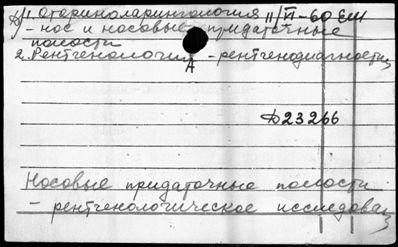 1. Отариноларингология 11/VI-60 ЕШ
- нос и носовые придаточные
полости
2. Рентгенология - рентгенодиагностик
А
Д23266
Носовые придаточные полости
- рентгенологическое исследован